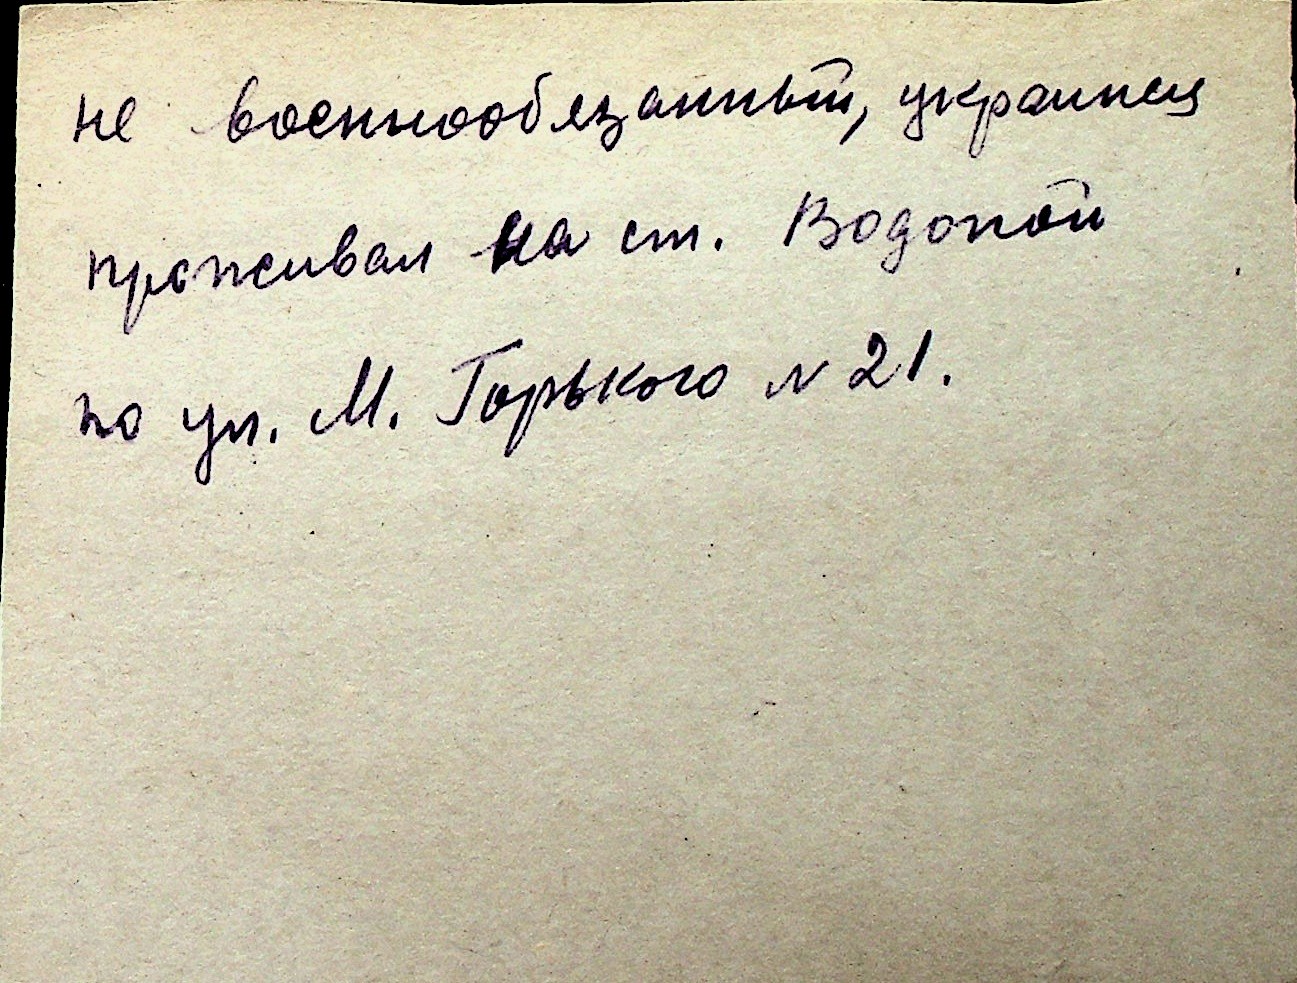 не военнообязанный, украинец
проживал на ст. Водопой
по ул. М. Горького N 21.